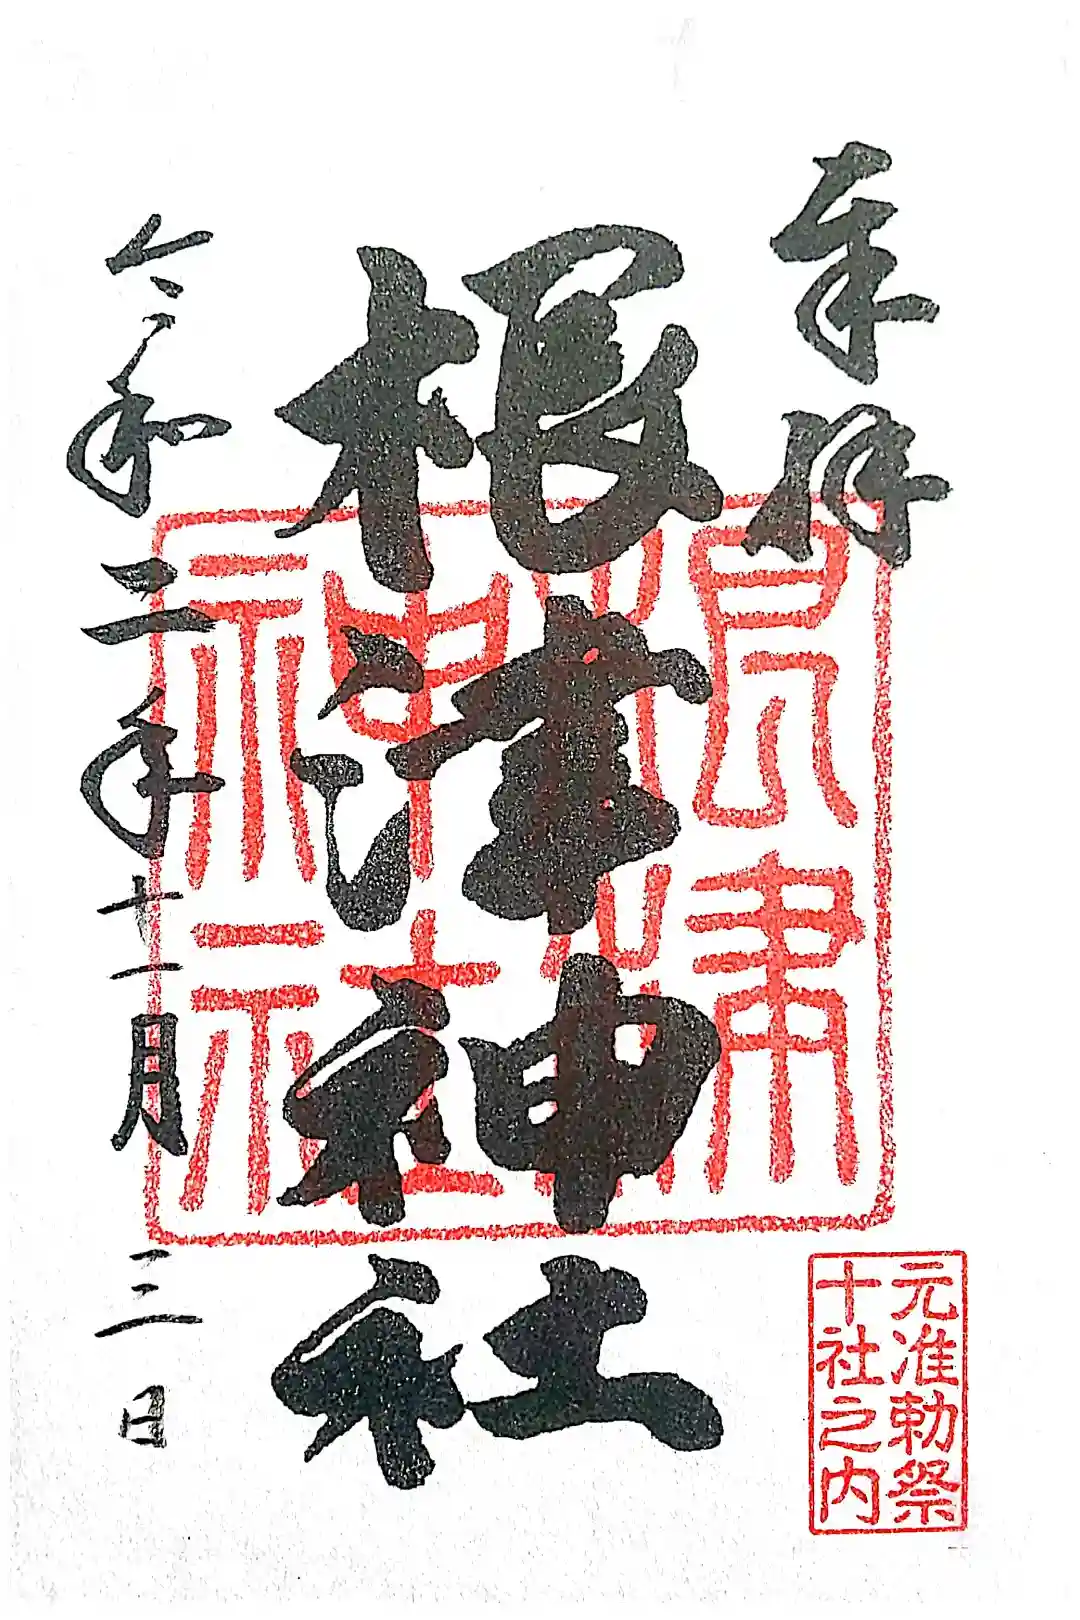 奉拝
根津神社
令和二年十一月三日
根津
神社
元准勅祭
十社之内